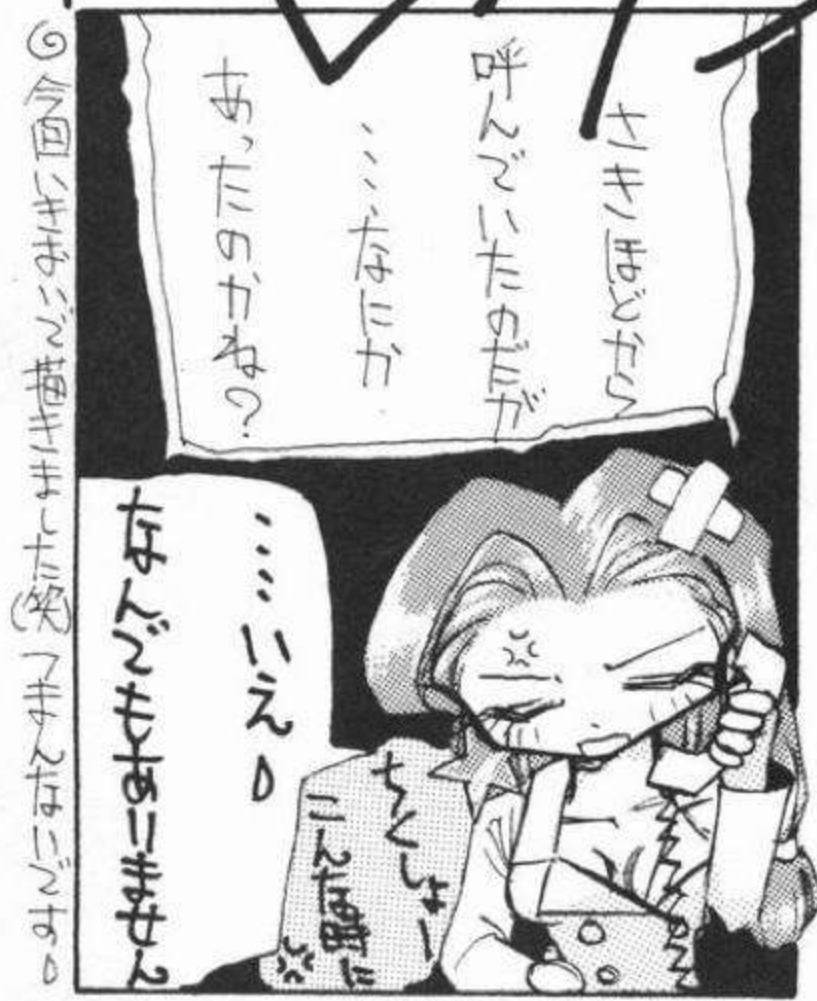 さきほどから
呼んでいたのだが
・・・・なにか
あったのかね？
・・・・いえ。
なんでもありません
ちくしょー
こんな時に
今回いきおいで描きました(笑) つまんないです。